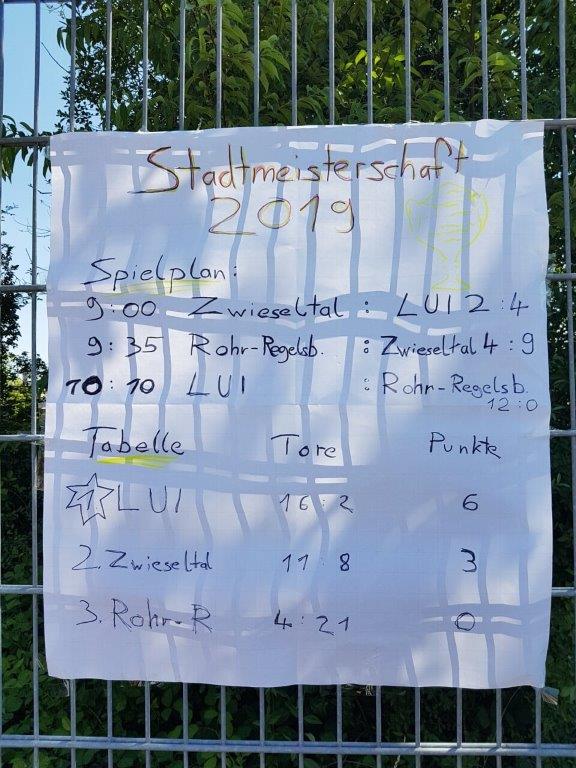 Stadtmeisterschaft
2019
Spielplan:
9:00 Zwieseltal : LUI 2:4
9:35 Rohr-Regelsb. : Zwieseltal 4:9
10:10 LUI : Rohr-Regelsb.
12:0
Tabelle Tore Punkte
1 LUI 16:2 6
2. Zwieseltal 11:8 3
3. Rohr-R 4:21 0